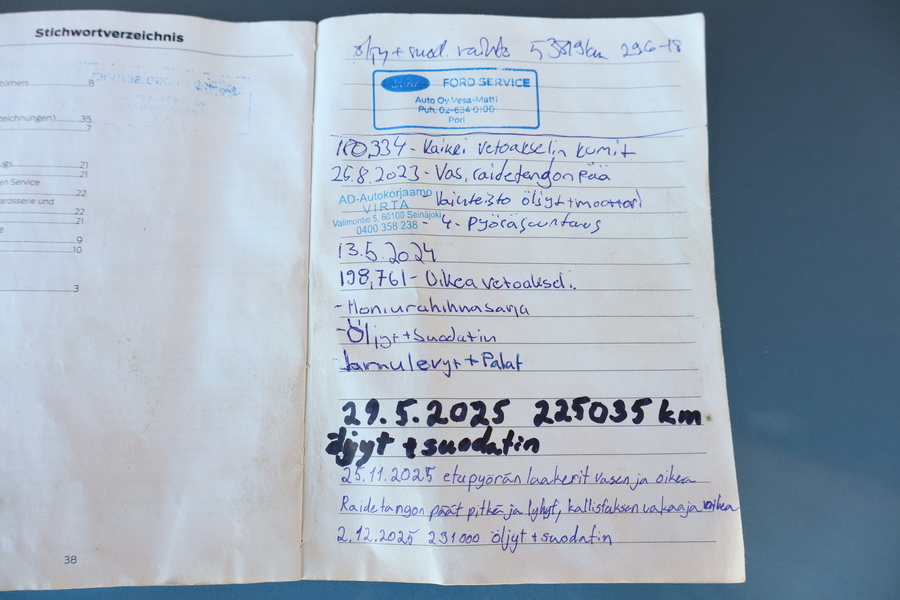 Stichwortverzeichnis
8
zeichnungen) 35
7
21
21
en Service
22
arosserie und
22
21
e
9
10
3
38
öljy + suod. vaihto 53819km 29.6-18
Ford FORD SERVICE
Auto Oy Vesa-Matti
Puh. 02-634 0100
Pori
180,334 - Kaikki vetoakselin kumit
26.8.2023 - Vas. raidetangon pää
AD-Autokorjaamo
VIRTA
Valimontie 5, 60100 Seinäjoki
0400 358 238
- Vaihteisto öljyt + moottori
- 4- pyöräsuuntaus
13.5.2024
198,761 - Oikea vetoakseli.
- Moniurahihnasarja
- Öljyt + Suodatin
Jarrulevyt + Palat
29.5.2025 225035 km
öljyt + suodatin
25.11.2025 etupyörän laakerit vasen ja oikea
Raidetangon päät pitkä ja lyhyt, kallistuksen vakaaja oikea
2.12.2025 231000 öljyt + suodatin